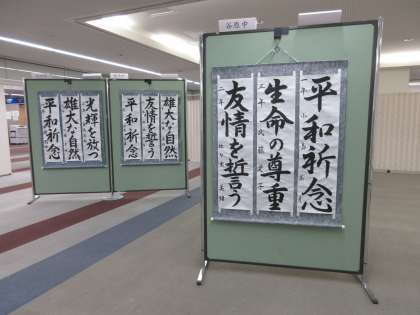 谷原中
平和祈念
生命の尊重
友情を誓う
二年
雄大な自然
友情を誓う
平和祈念
光輝を放つ
雄大な自然
平和祈念